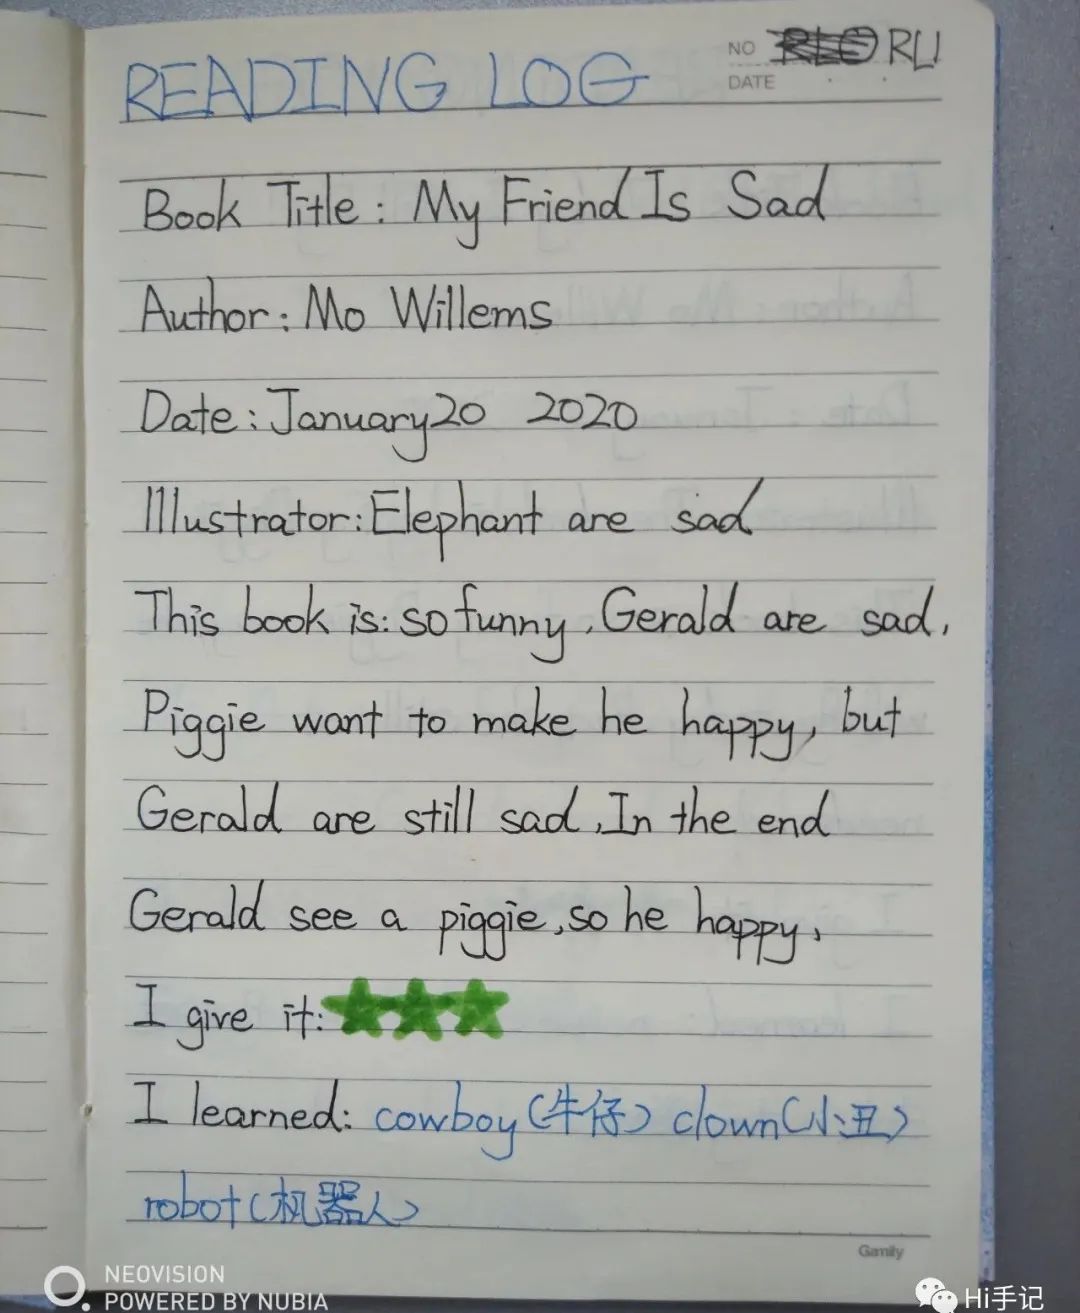 NO RU
DATE
READING LOG
Book Title: My Friend Is Sad
Author: Mo Willems
Date: January 20 2020
Illustrator: Elephant are sad
This book is: so funny. Gerald are sad,
Piggie want to make he happy, but
Gerald are still sad. In the end
Gerald see a piggie, so he happy,
I give it:
I learned: cowboy(牛仔) clown(小丑)
robot(机器人)
Gamily
NEOVISION
POWERED BY NUBIA
Hi手记